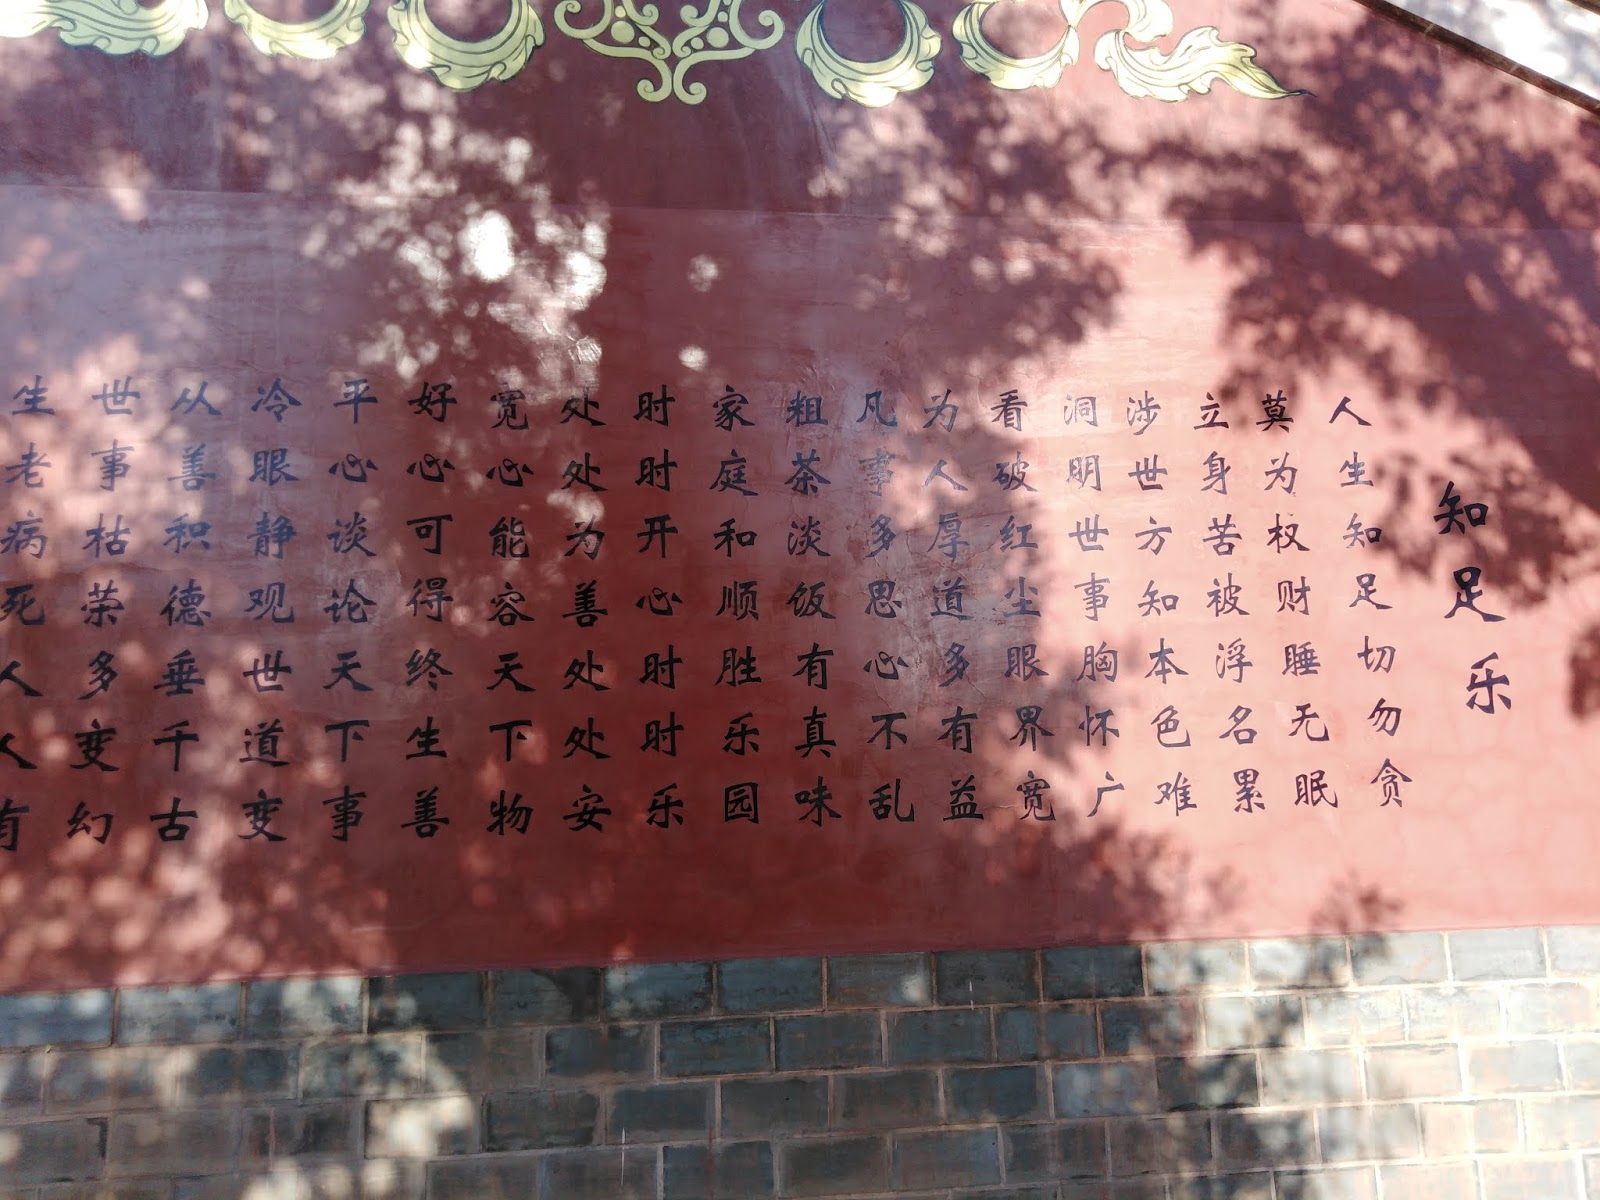 知足乐
人生知足切勿贪
莫为权财睡无眠
立身苦被浮名累
涉世方知本色难
洞明世事胸怀广
看破红尘眼界宽
为人厚道多有益
凡事多思心不乱
粗茶淡饭有真味
家庭和顺胜乐园
时时开心时时乐
处处为善处处安
宽心能容天下物
好心可得终生善
平心谈论天下事
冷眼静观世道变
从善积德垂千古
世事枯荣多变幻
生老病死人人有